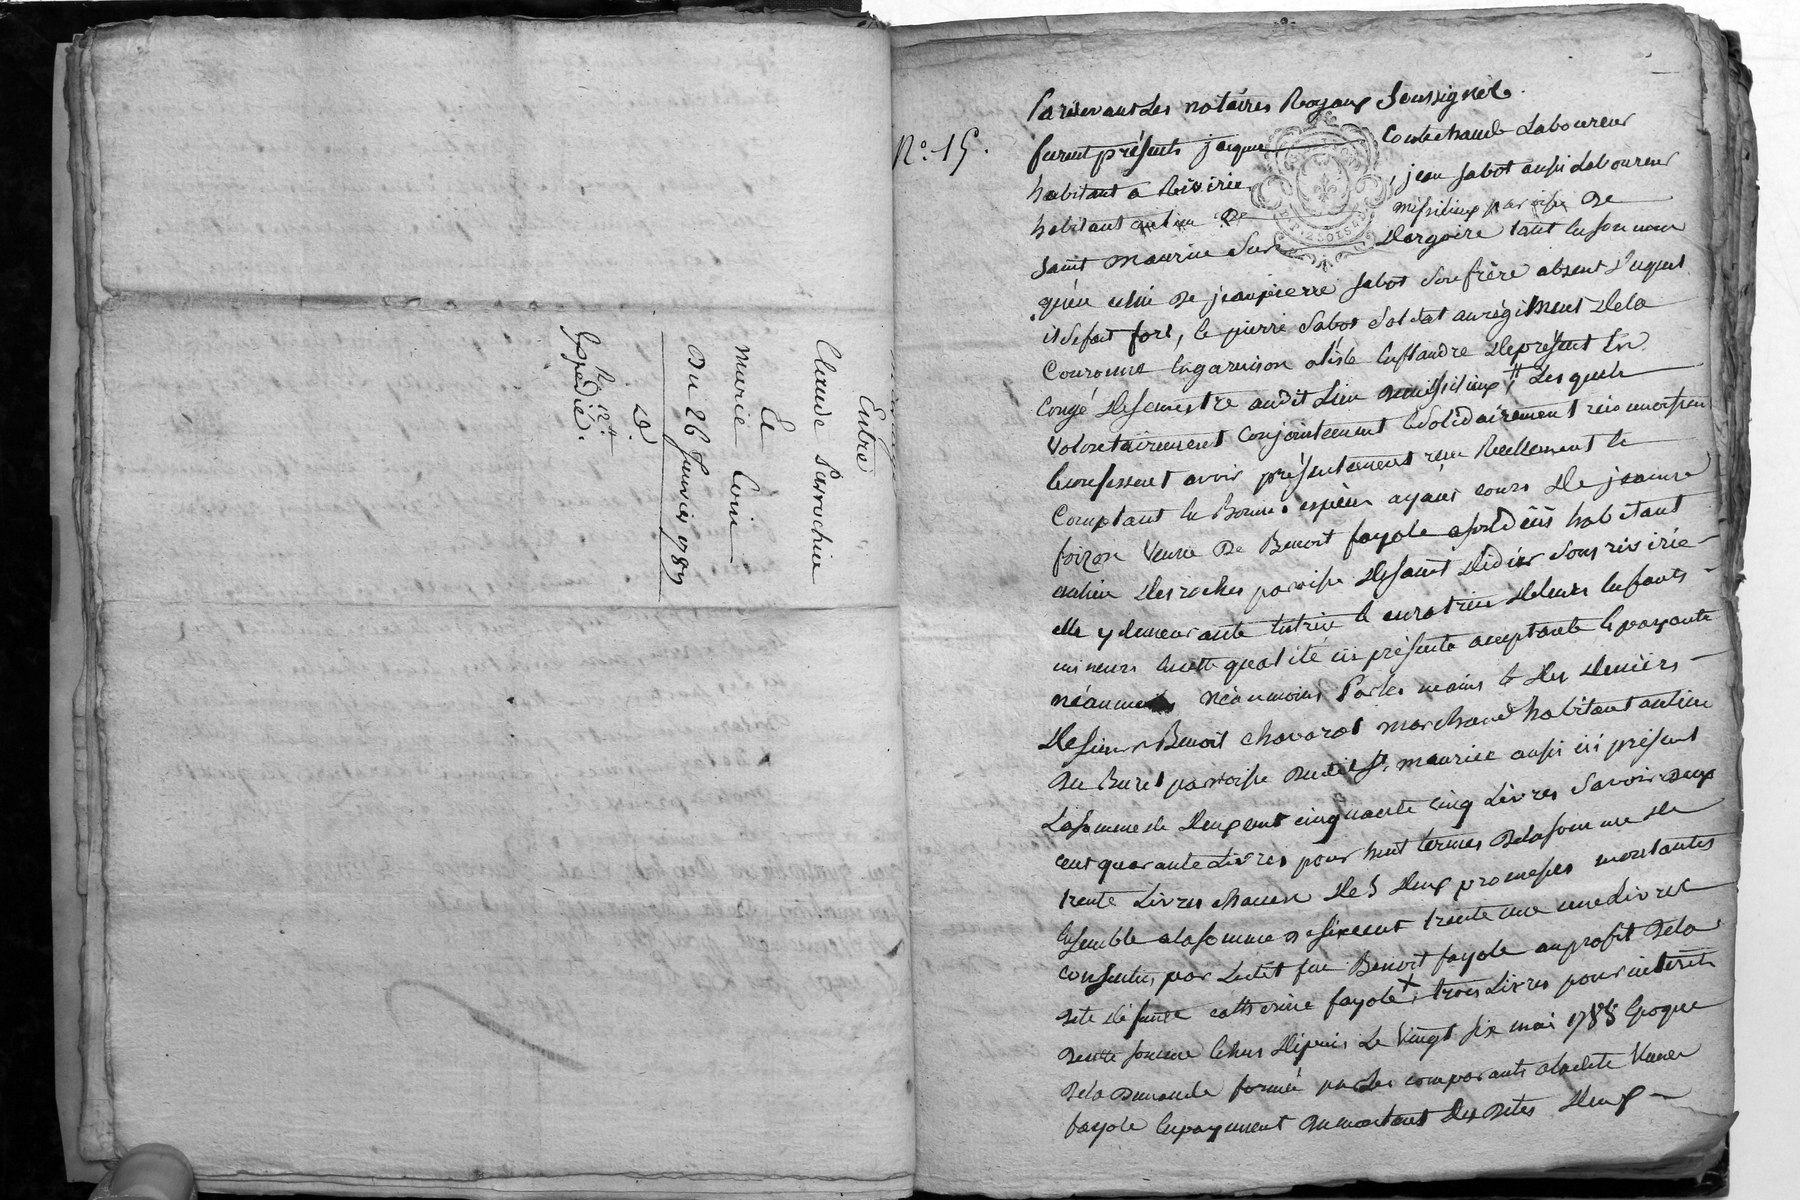 Entre
Claude Parrochia
Et
Marie Coin
Du 26 Janvier 1789
Expédié.
N.o 15.
Pardevant Les notaires Royaux Soussignés.
furent présents jacque Coutechaude Laboureur
habitant a Riverie, jean jabot aussi Laboureur
habitant au lieu De Missilieux paroisse De
Saint Maurice Sur Dargoire tant En son nom
qu'en celui De jean pierre jabot Son frère absent Duquel
il Se fait fort, Et pierre jabot Soldat au régiment De la
Couronne En garnison a lisle En flandre De présent En
Congé De semestre audit Lieu De Missilieux # Les quels
Volontairement Conjointement Et Solidairement reconnoissent
Et confessent avoir présentement reçu Réellement Et
Comptant En Bonnes espèces ayant cours De jeanne
foizon Veuve De Benoit fayole habitant
au lieu Des roches paroisse De saint Didier Sous riverie
elle y demeurante tutrice Et curatrice De leurs Enfants
mineurs En cette qualité ici présente acceptante Et payante
néanmoins Par les mains Et Des Deniers
De sieur Benoit chavarot marchand habitant au lieu
Du Buret paroisse Dudit St maurice aussi ici présent
La somme de Deux cent cinquante cinq Livres Savoir Deux
cent quarante Livres pour huit termes De la somme De
trente Livres chacun De Deux promesses montantes
Ensemble a la somme De six cent trente une Livres
consenties par Ledit feu Benoit fayole au profit De la
dite défunte catherine fayole + trois Livres pour intérêts
De cette somme Echus Depuis Le Vingt Six mai 1788 Epoque
De la Demande formée par Les comparants a ladite Veuve
fayole En payement Du montant Des Dites Deux